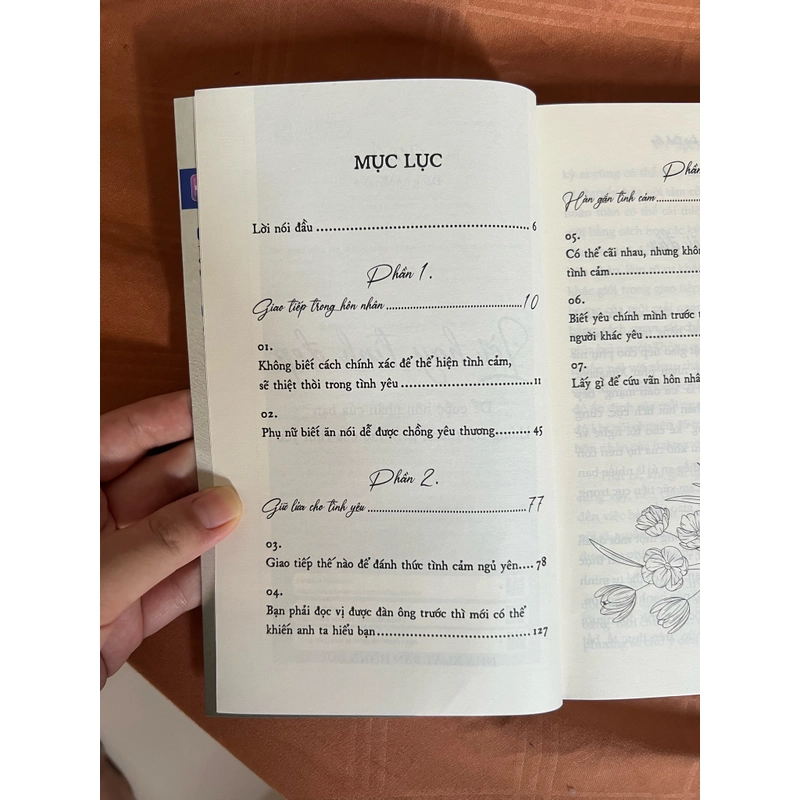 MỤC LỤC
Lời nói đầu........................................................6
Phần 1.
Giao tiếp trong hôn nhân........................................10
01.
Không biết cách chính xác để thể hiện tình cảm,
sẽ thiệt thòi trong tình yêu................................11
02.
Phụ nữ biết ăn nói dễ được chồng yêu thương.........45
Phần 2.
Giữ lửa cho tình yêu..............................................77
03.
Giao tiếp thế nào để đánh thức tình cảm ngủ yên....78
04.
Bạn phải đọc vị được đàn ông trước thì mới có thể
khiến anh ta hiểu bạn........................................127
Phần
Hàn gắn tình cảm............
05.
Có thể cãi nhau, nhưng
tình cảm........................
06.
Biết yêu chính mình trước
người khác yêu................
07.
Lấy gì để cứu vãn hôn